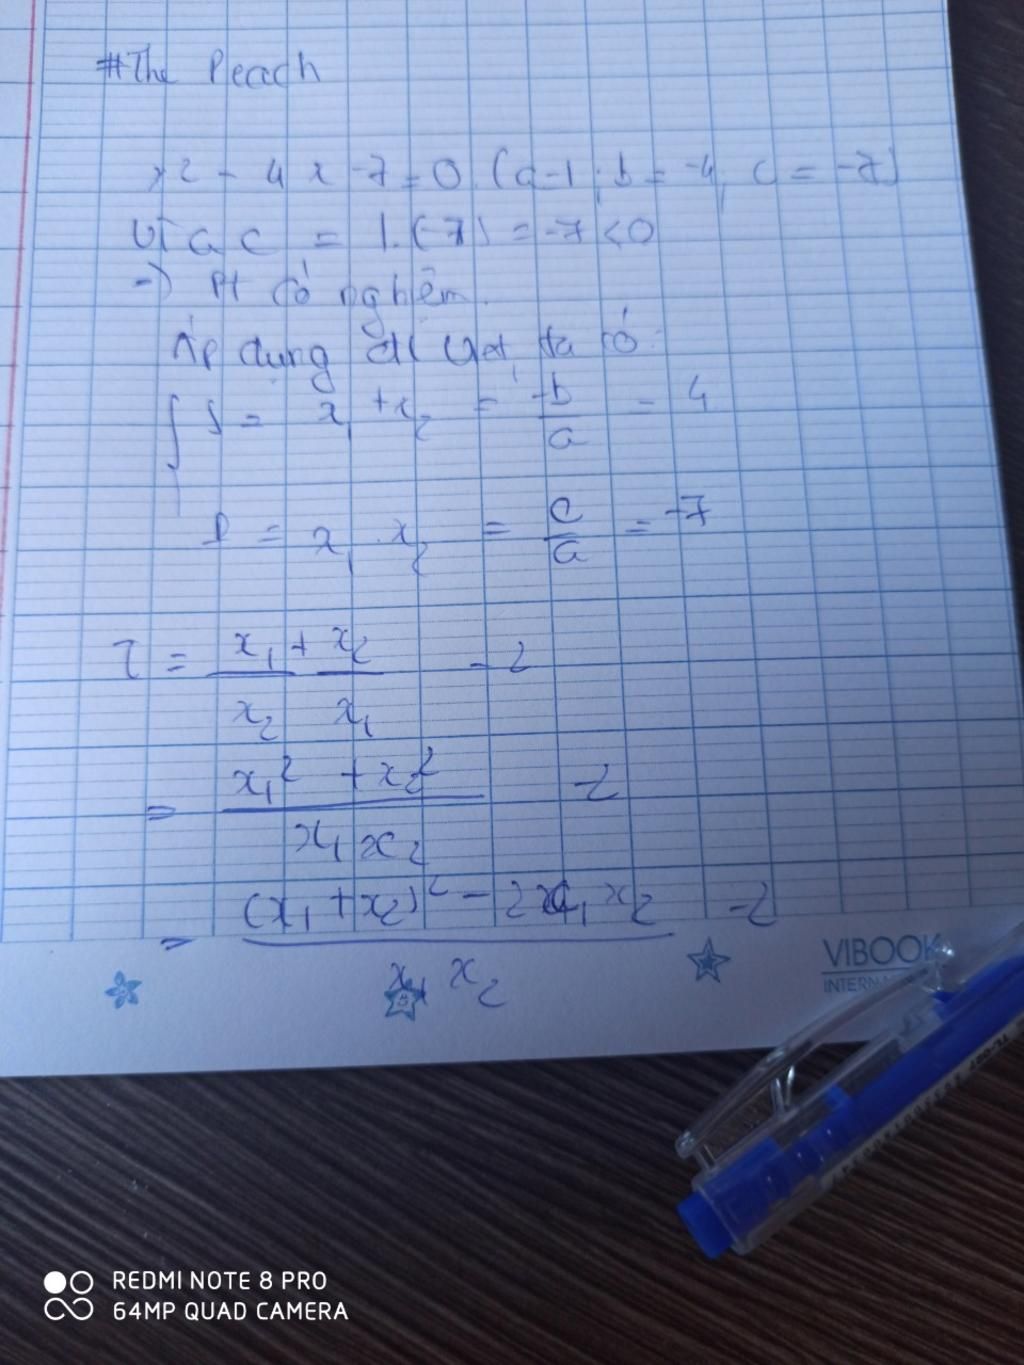 #The Peach
x2 - 4x - 7 = 0 (a = 1; b = -4, c = -7)
Vì a c = 1.(-7) = -7 < 0
-) Pt có nghiệm.
Áp dụng đl Viet, ta có:
{ S = x1 + x2 = -b/a = 4
P = x1 . x2 = c/a = -7
T = x1/x2 + x2/x1 - 2
= (x1² + x2²)/(x1 x2) - 2
= ((x1 + x2)² - 2x1 x2)/(x1 x2) - 2
VIBOOK
INTERN
REDMI NOTE 8 PRO
64MP QUAD CAMERA